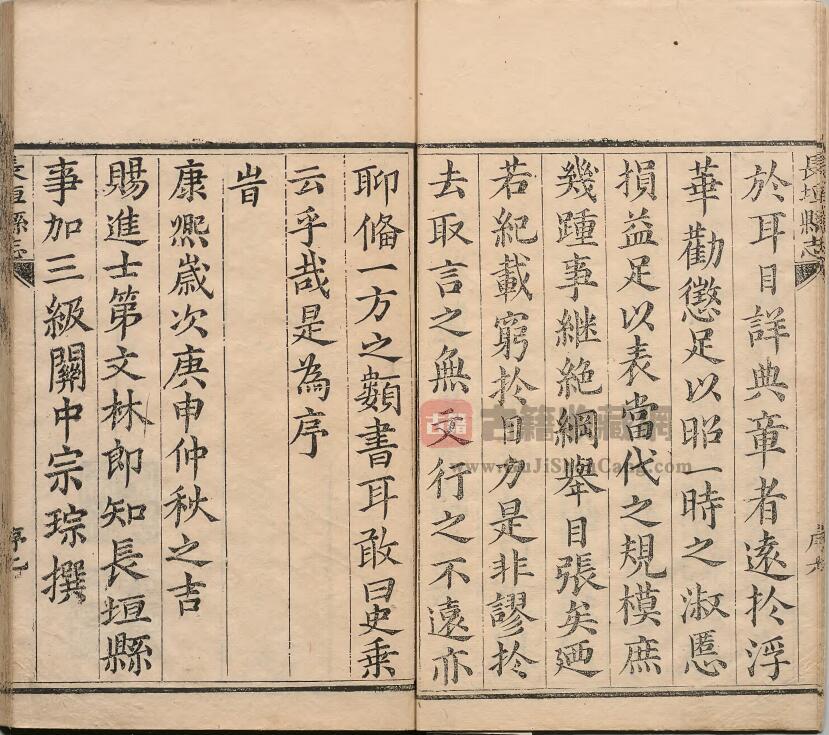 長垣縣志
序六
於耳目詳典章者遠於浮
華勸懲足以昭一時之淑慝
損益足以表當代之規模庶
幾踵事継絶綱舉目張矣廼
若紀載窮於目力是非謬於
去取言之無文行之不遠亦
聊俻一方之類書耳敢曰史乗
云乎哉是為序
旹
康熈歲次庚申仲秋之吉
賜進士第文林郎知長垣縣
事加三級關中宗琮撰
長垣縣志
序七
古籍
www.GuJiShuCang.com